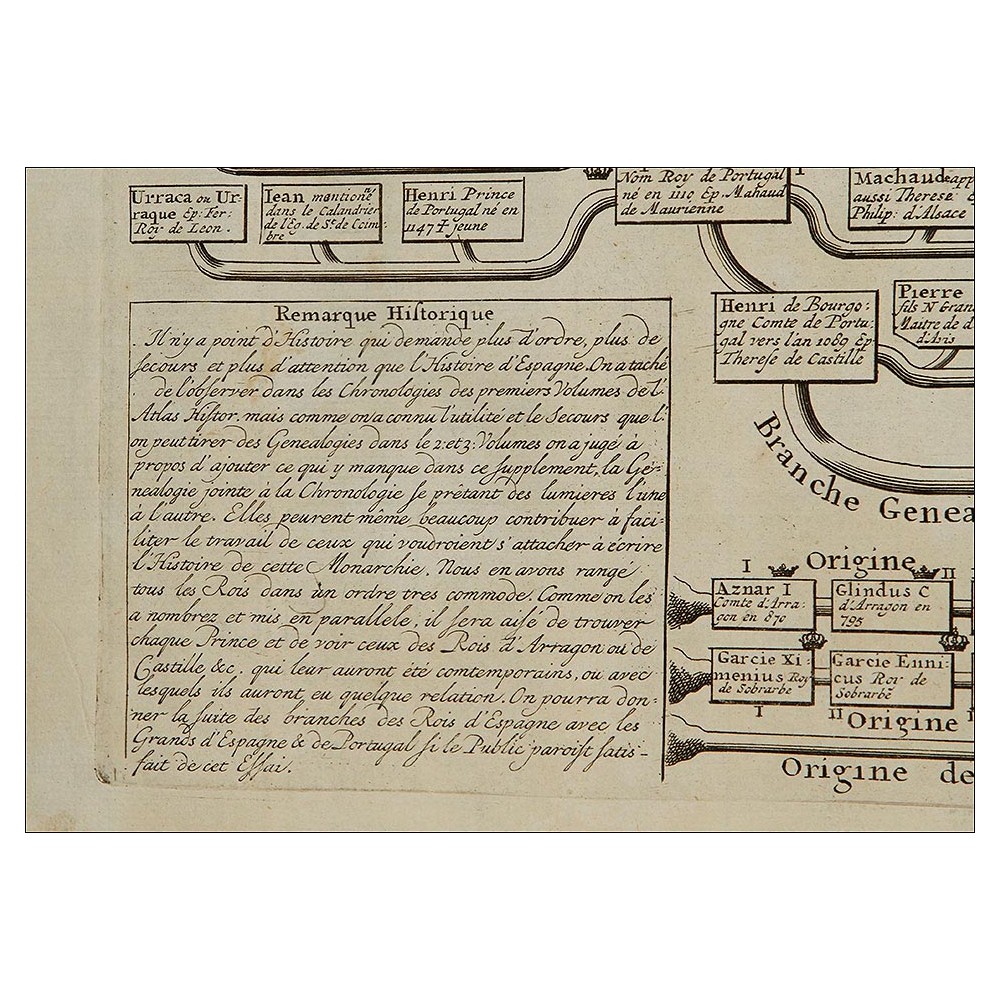 Urraca ou Ur-
raque Ep: Fer:
Roy de Leon.
Iean mantioné
dans le Calandrier
de l'Eg. de Ste. de Coim
bre
Henri Prince
de Portugal né en
1147 ✝ jeune
Nom Roy de Portugal
né en 1110 Ep. Mahaud
de Maurienne
Machaud
aussi Therese
Philip: d'Alsace
Henri de Bourgo:
gne Comte de Portu:
gal vers l'an 1089 Ep
Therese de Castille
Pierre
fils N
Maitre de
d'Avis
Remarque Historique
Il n'y a point d'Histoire qui demande plus d'ordre, plus de
secours et plus d'attention que l'Histoire d'Espagne. On a taché
de l'observer dans les Chronologies des premiers Volumes de l'
Atlas Histor. mais comme on a connu l'utilité et le Secours que l'
on peut tirer des Genealogies dans le 2: et 3: Volumes on a jugé à
propos d'ajouter ce qui y manque dans ce supplement, la Ge-
nealogie jointe à la Chronologie se prêtant des lumieres l'une
à l'autre. Elles peuvent même beaucoup contribuer à faci-
liter le travail de ceux qui voudroient s'attacher à ecrire
l'Histoire de cette Monarchie. Nous en avons rangé
tous les Rois dans un ordre tres commode. Comme on les
a nombrez et mis en parallele, il sera aisé de trouver
chaque Prince et de voir ceux des Rois d'Arragon ou de
Castille &c. qui leur auront été comtemporains, ou avec
lesquels ils auront eu quelque relation. On pourra don-
ner la suite des branches des Rois d'Espagne avec les
Grands d'Espagne & de Portugal si le Public paroist satis-
fait de cet Essai.
Branche Genea
Origine
I
II
Aznar I
Comte d'Arra-
gon en 870
Glindus C
d'Arragon en
795
Garcie Xi-
menius Roy
de Sobrarbe
Garcie Enni-
cus Roy de
Sobrarbe
I
II
Origine
Origine de